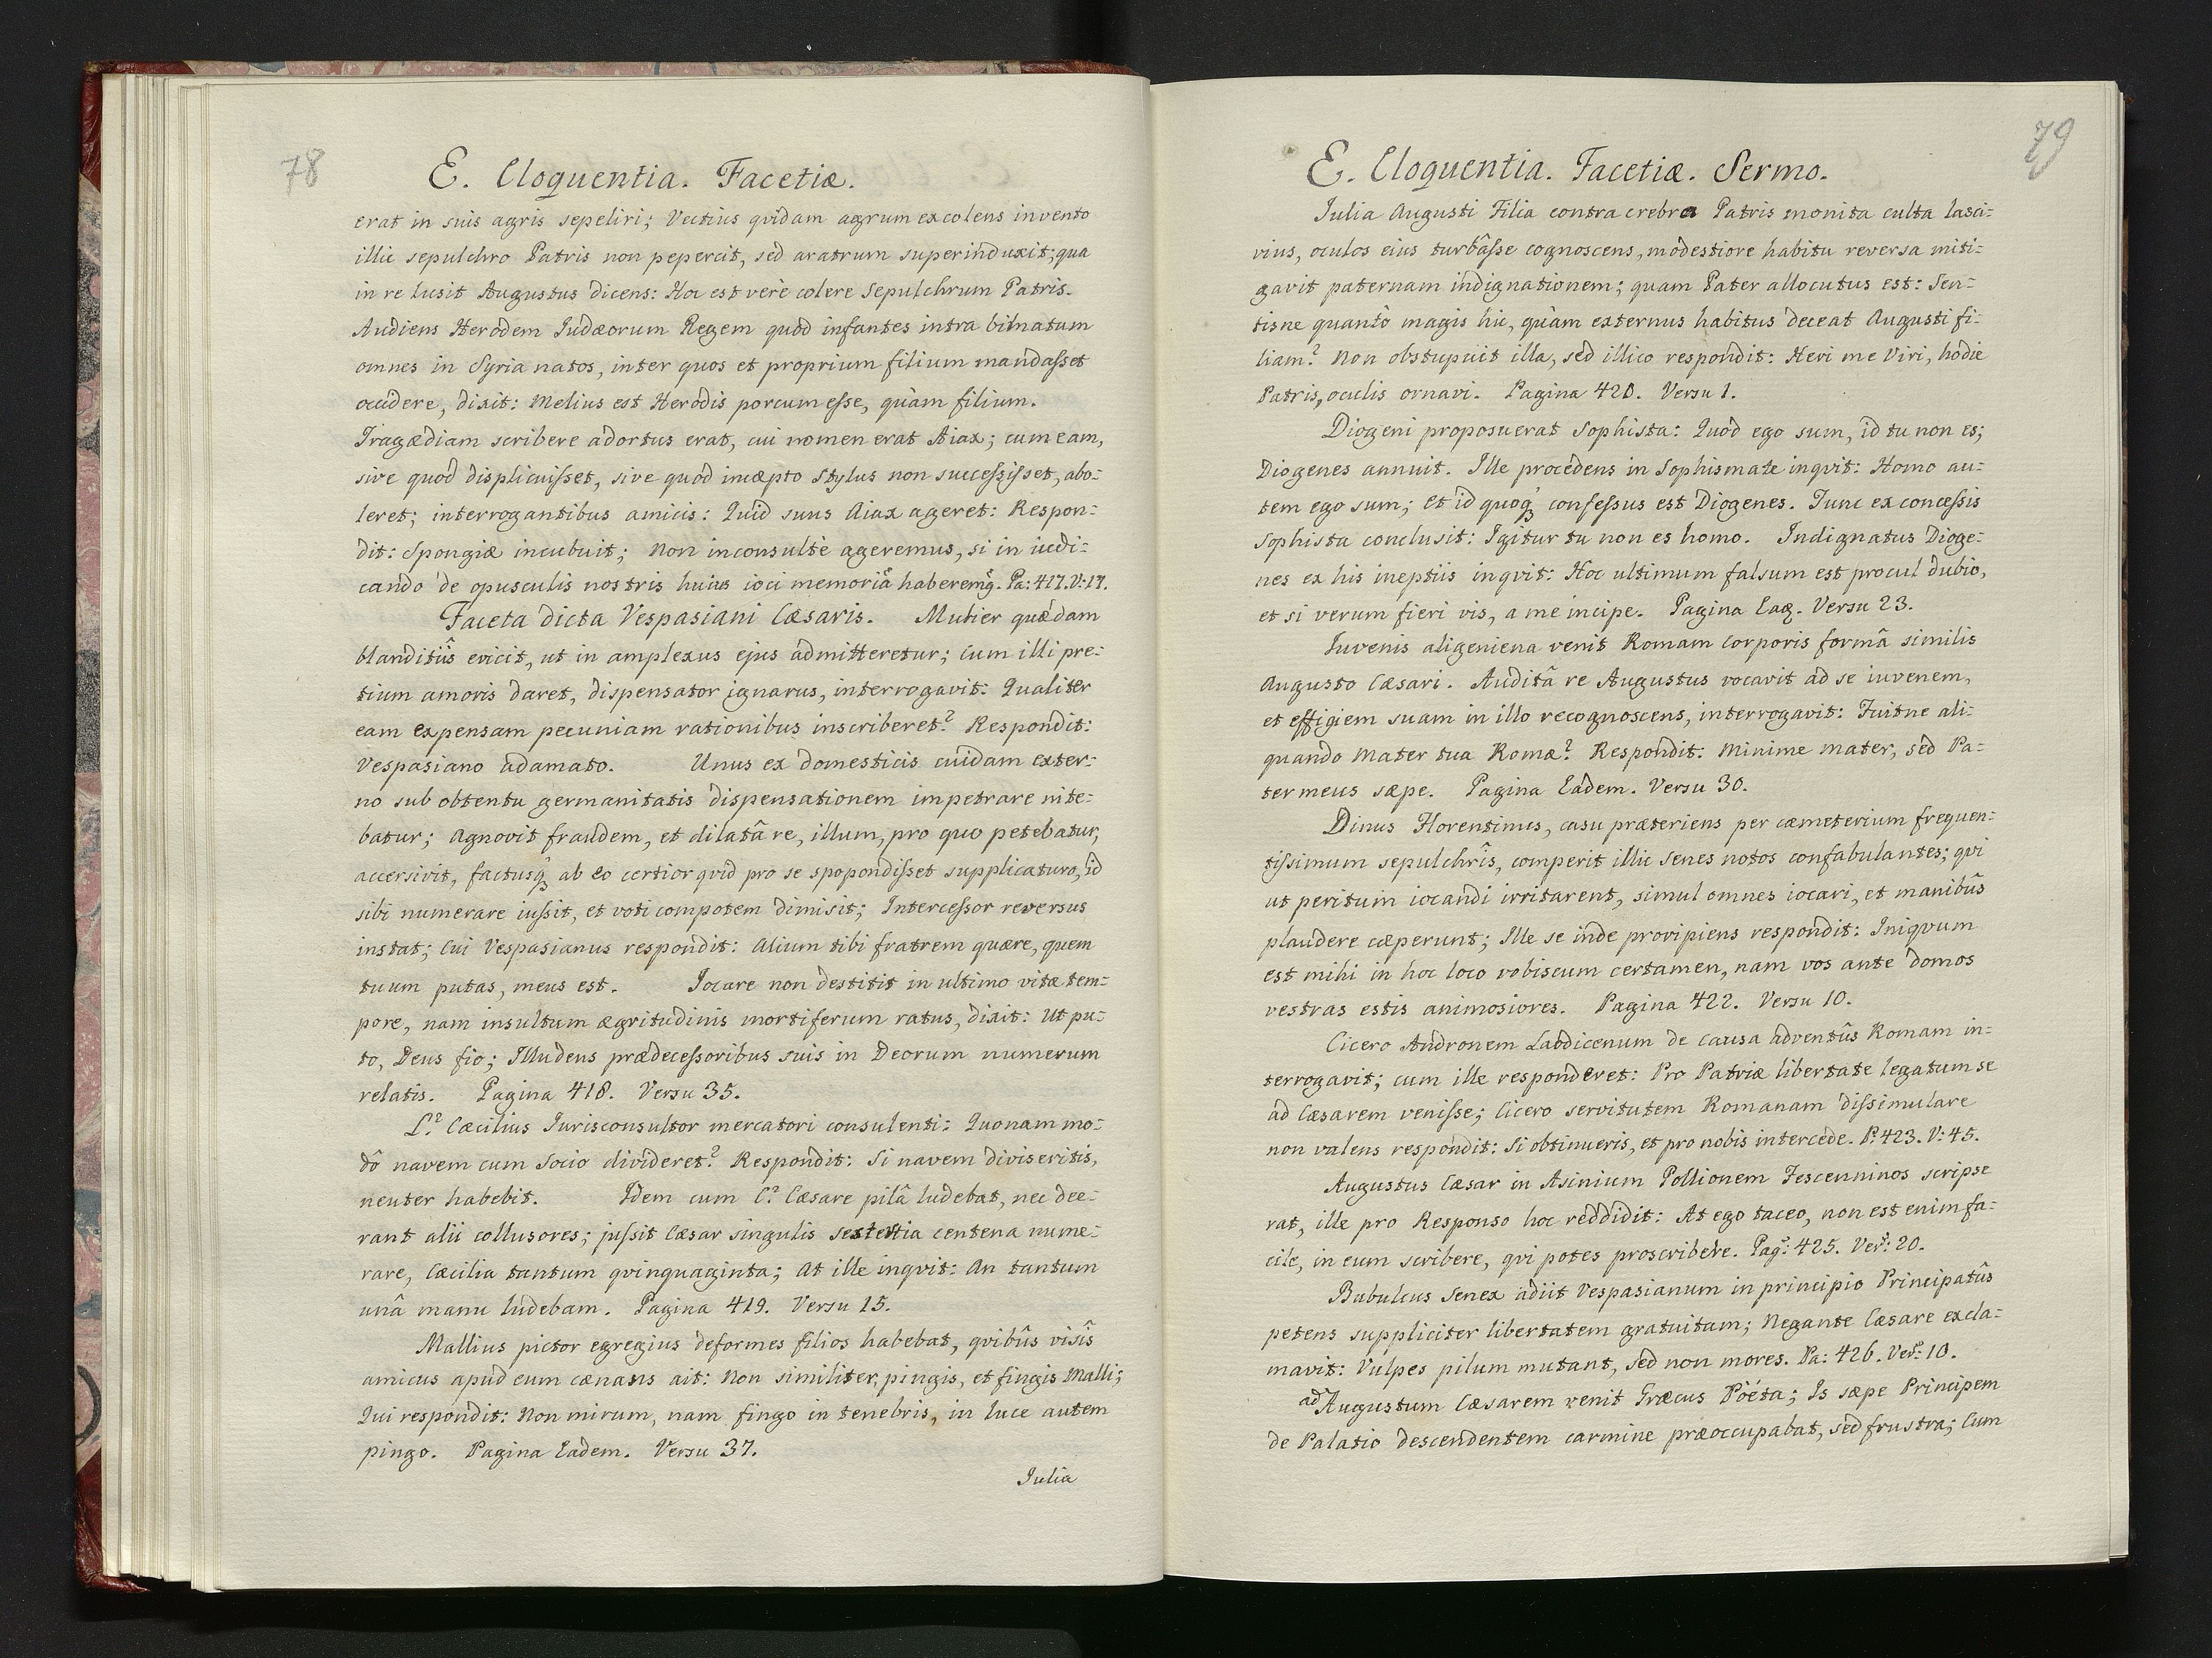 78
E. Eloquentia. Facetiæ.
erat in suis agris sepeliri; Vectius qvidam agrum excolens invento
illic sepulchro Patris non pepercit, sed aratrum superinduxit; qua
in re lusit Augustus dicens: Hoc est verè colere Sepulchrum Patris.
Audiens Herodem Iudæorum Regem quod infantes intra bimatum
omnes in Syria natos, inter quos et proprium filium mandasset
occidere, dixit: Melius est Herodis porcum esse, quàm filium.
Tragædiam scribere adortus erat, cui nomen erat Aiax; cum eam,
sive quod displicuisset, sive quod incæpto stylus non successisset, abo-
leret; interrogantibus amicis: Quid suus Aiax ageret: Respon-
dit: Spongiæ incubuit; Non inconsultè ageremus, si in iudi-
cando de opusculis nostris huius ioci memoriã haberemq. Pa: 417. V: 17.
Faceta dicta Vespasiani Cæsaris. Mulier quædam
blanditiis evicit, ut in amplexus ejus admitteretur; Cum illi pre-
tium amoris daret, dispensator ignarus, interrogavit: Qualiter
eam expensam pecuniam rationibus inscriberet? Respondit:
Vespasiano adamato. Unus ex domesticis cuidam exter-
no sub obtentu germanitatis dispensationem impetrare nite-
batur; Agnovit fraudem, et dilatâ re, illum, pro quo petebatur,
accersivit, factusq3 ab eo certior qvid pro se spopondisset supplicaturo, id
sibi numerare iussit, et voti compotem dimisit; Intercessor reversus
instat; Cui Vespasianus respondit: Alium tibi fratrem quære, quem
tuum putas, meus est. Iocare non destitit in ultimo vitæ tem-
pore, nam insultum ægritudinis mortiferum ratus, dixit: Ut pu-
to, Deus fio; Illudens prædecessoribus suis in Deorum numerum
relatis. Pagina 418. Versu 35.
L? Cæcilius Iurisconsultor mercatori consulenti: Quonam mo-
dô navem cum Socio divideret? Respondit: Si navem diviseritis,
neuter habebit. Idem cum C? Cæsare pilâ ludebat, nec dee-
rant alii collusores; jussit Cæsar singulis sestertia centena nume-
rare, Cæcilia tantum qvinquaginta; At ille inqvit: An tantum
unâ manu ludebam. Pagina 419. Versu 15.
Mallius pictor egregius deformes filios habebat, qvibûs visîs
amicus apud eum cænans ait: Non similiter, pingis, et fingis Malli;
Qui respondit: Non mirum, nam fingo in tenebris, in luce autem
pingo. Pagina Eadem. Versu 37.
Iulia
79
E. Eloquentia. Facetiæ. Sermo.
Iulia Augusti Filia contra crebra Patris monita culta lasci-
vius, oculos eius turbâsse cognoscens, modestiore habitu reversa miti-
gavit paternam indignationem; quam Pater allocutus est: Sen-
tisne quantò magis hic, quàm externus habitus deceat Augusti fi-
liam? Non obstupuit illa, sed illico respondit: Heri me Viri, hodie
Patris, oculis ornavi. Pagina 420. Versu 1.
Diogeni proposuerat Sophista: Quod ego sum, id tu non es;
Diogenes annuit. Ille procedens in Sophismate inqvit: Homo au-
tem ego sum; Et id quoq3 confessus est Diogenes. Tunc ex concessis
Sophista conclusit: Igitur tu non es homo. Indignatus Dioge-
nes ex his ineptiis inqvit: Hoc ultimum falsum est procul dubio,
et si verum fieri vis, a me incipe. Pagina Eaq. Versu 23.
Iuvenis aligeniena venit Romam Corporis formâ similis
Augusto Cæsari. Auditâ re Augustus vocavit ad se iuvenem,
et effigiem suam in illo recognoscens, interrogavit: Fuitne ali-
quando Mater tua Romæ? Respondit: Minime mater, sed Pa-
ter meus sæpe. Pagina Eadem. Versu 30.
Dinus Florentinus, casu præteriens per cæmeterium frequen-
tissimum sepulchrîs, comperit illic Senes notos confabulantes; qvi
ut peritum iocandi irritarent, simul omnes iocari, et manibûs
plaudere cæperunt; Ille se inde provipiens respondit: Iniqvum
est mihi in hoc loco vobiscum certamen, nam vos ante domos
vestras estis animosiores. Pagina 422. Versu 10.
Cicero Andronem Laodicenum de causa adventûs Romam in-
terrogavit; cum ille responderet: Pro Patriæ libertate legatum se
ad Cæsarem venisse; Cicero servitutem Romanam dissimulare
non valens respondit: Si obtinueris, et pro nobis intercede. P: 423. V: 45.
Augustus Cæsar in Asinium Pollionem Fescenninos scripse
rat, ille pro Responso hoc reddidit: At ego taceo, non est enim fa-
cile, in eum scribere, qvi potes proscribere. Pag: 425. Ver: 20.
Bubulcus Senex adiit Vespasianum in principio Principatûs
petens suppliciter libertatem gratuitam; Negante Cæsare excla-
mavit: Vulpes pilum mutant, sed non mores. Pa: 426. Ver: 10.
ad Augustum Cæsarem venit Græcus Pöéta; Is sæpe Principem
de Palatio descendentem carmine præoccupabat, sed frustra; Cum